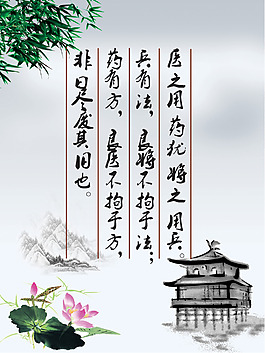 医之用药犹将之用兵。
兵有法，良将不拘于法；
药有方，良医不拘于方，
非曰尽废其旧也。